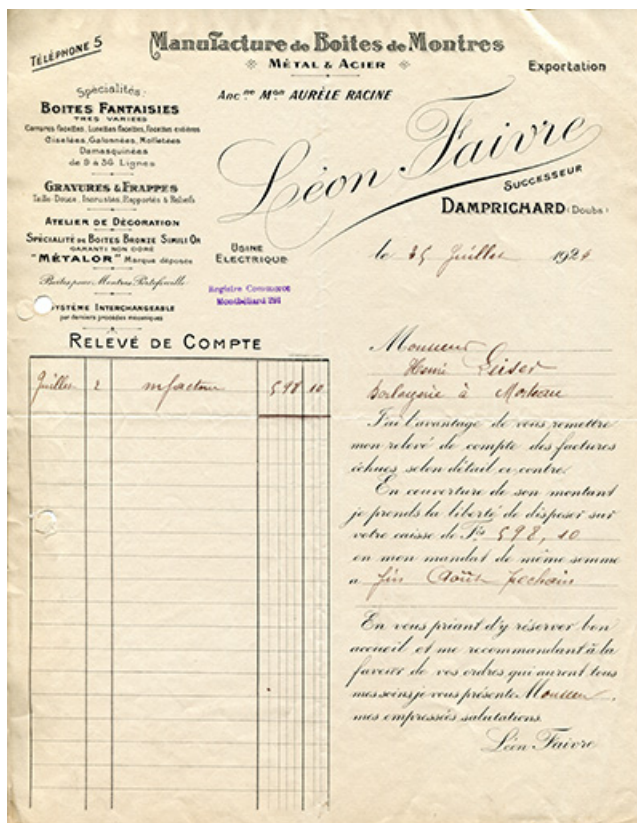 TÉLÉPHONE 5
Manufacture de Boites de Montres
MÉTAL & ACIER
Exportation
Ancne Mon AURÈLE RACINE
Léon Faivre
SUCCESSEUR
DAMPRICHARD (Doubs)
Spécialités:
BOITES FANTAISIES
TRES VARIÉES
Carrures facettes, Lunettes facettes, Facettes entières
Ciselées, Galonnées, Molletées
Damasquinées
de 9 à 36 Lignes
GRAVURES & FRAPPES
Taille-Douce, Incrustés, Rapportés & Reliefs
ATELIER DE DÉCORATION
SPÉCIALITÉ DE BOITES BRONZE SIMILI OR
GARANTI NON DORÉ
"MÉTALOR" Marque déposée
Boites pour Montres Portefeuille
SYSTÈME INTERCHANGEABLE
par derniers procédés mécaniques
USINE
ELECTRIQUE
Registre Commerce
Montbéliard 291
le 25 Juillet 1924
RELEVÉ DE COMPTE
Juillet 2 m/facture 598 10
Monsieur
Henri
Horlogerie à Morteau
J'ai l'avantage de vous remettre
mon relevé de compte des factures
échues, selon détail ci-contre.
En couverture de son montant
je prends la liberté de disposer sur
votre caisse de Frs 598,10
en mon mandat de même somme
a fin Août prochain
En vous priant d'y réserver bon
accueil et me recommandant à la
faveur de vos ordres qui auront tous
mes soins, je vous présente Monsieur,
mes empressées salutations.
Léon Faivre